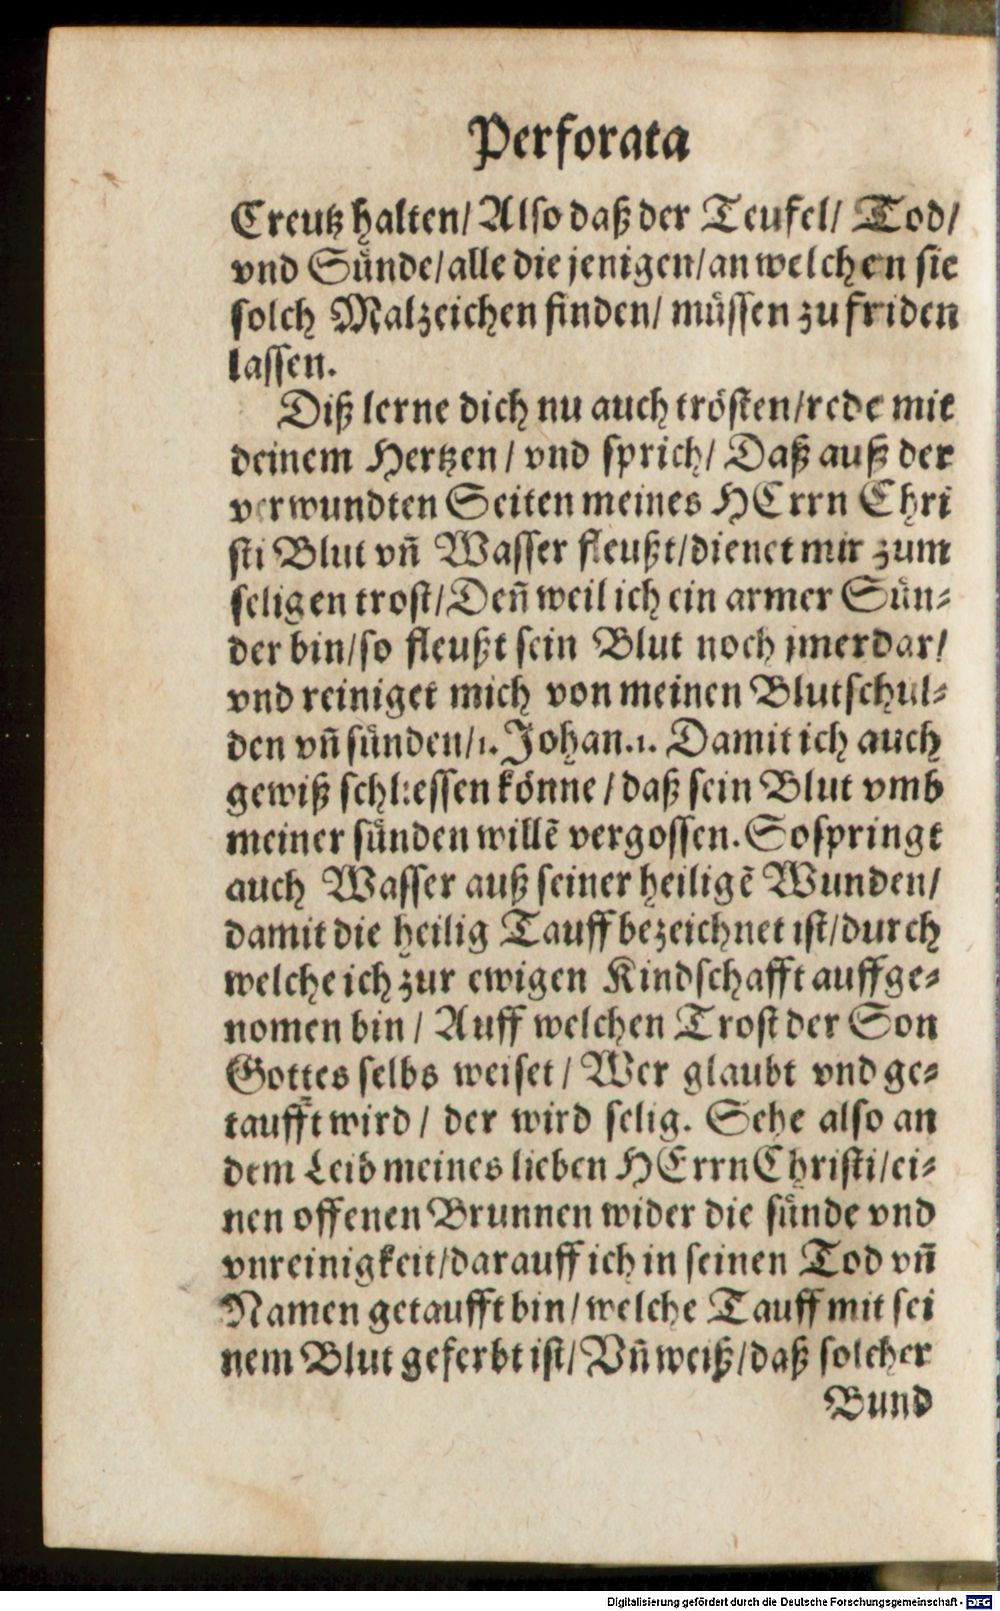 Perforata
Creutz halten/ Also daß der Teufel/ Tod/
vnd Sünde/ alle die jenigen/ an welchen sie
solch Malzeichen finden/ müssen zu friden
lassen.
Diß lerne dich nu auch trösten/ rede mit
deinem Hertzen/ vnd sprich/ Daß auß der
verwundten Seiten meines HErrn Chri
sti Blut vñ Wasser fleußt/ dienet mir zum
seligen trost/ Deñ weil ich ein armer Sün-
der bin/ so fleußt sein Blut noch jmerdar/
vnd reiniget mich von meinen Blutschul-
den vñ sünden/ 1. Johan. 1. Damit ich auch
gewiß schliessen könne/ daß sein Blut vmb
meiner sünden willẽ vergossen. So springt
auch Wasser auß seiner heiligẽ Wunden/
damit die heilig Tauff bezeichnet ist/ durch
welche ich zur ewigen Kindschafft auffge-
nomen bin/ Auff welchen Trost der Son
Gottes selbs weiset/ Wer glaubt vnd ge-
taufft wird/ der wird selig. Sehe also an
dem Leib meines lieben HErrn Christi/ ei-
nen offenen Brunnen wider die sünde vnd
vnreinigkeit/ darauff ich in seinen Tod vñ
Namen getaufft bin/ welche Tauff mit sei
nem Blut geferbt ist/ Vñ weiß/ daß solcher
Bund
Digitalisierung gefördert durch die Deutsche Forschungsgemeinschaft - DFG